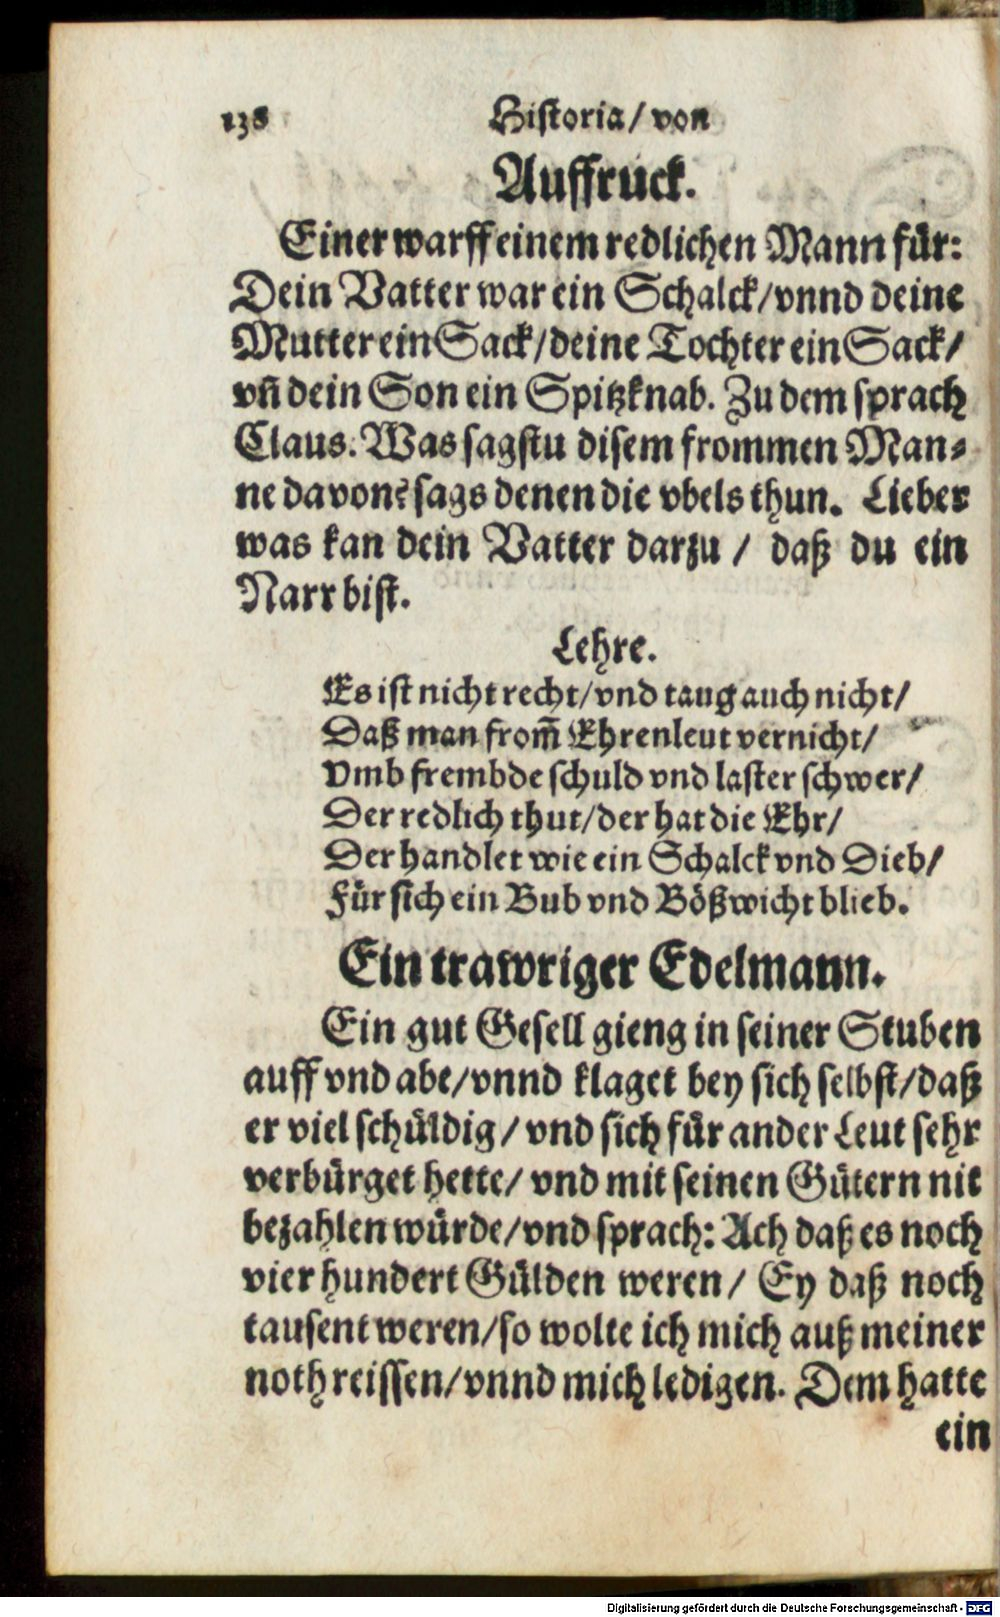 138 Historia/ von
Auffruck.
Einer warff einem redlichen Mann für:
Dein Vatter war ein Schalck/vnnd deine
Mutter ein Sack/deine Tochter ein Sack/
vñ dein Son ein Spitzknab. Zu dem sprach
Claus. Was sagstu disem frommen Man-
ne davon? sags denen die vbels thun. Lieber
was kan dein Vatter darzu / daß du ein
Narr bist.
Lehre.
Es ist nicht recht/vnd taug auch nicht/
Daß man from̃ Ehrenleut vernicht/
Vmb frembde schuld vnd laster schwer/
Der redlich thut/der hat die Ehr/
Der handlet wie ein Schalck vnd Dieb/
Für sich ein Bub vnd Bößwicht blieb.
Ein trawriger Edelmann.
Ein gut Gesell gieng in seiner Stuben
auff vnd abe/vnnd klaget bey sich selbst/daß
er viel schüldig/ vnd sich für ander Leut sehr
verbürget hette/ vnd mit seinen Gütern nit
bezahlen würde/vnd sprach: Ach daß es noch
vier hundert Gülden weren/ Ey daß noch
tausent weren/so wolte ich mich auß meiner
noth reissen/vnnd mich ledigen. Dem hatte
ein
Digitalisierung gefördert durch die Deutsche Forschungsgemeinschaft - DFG